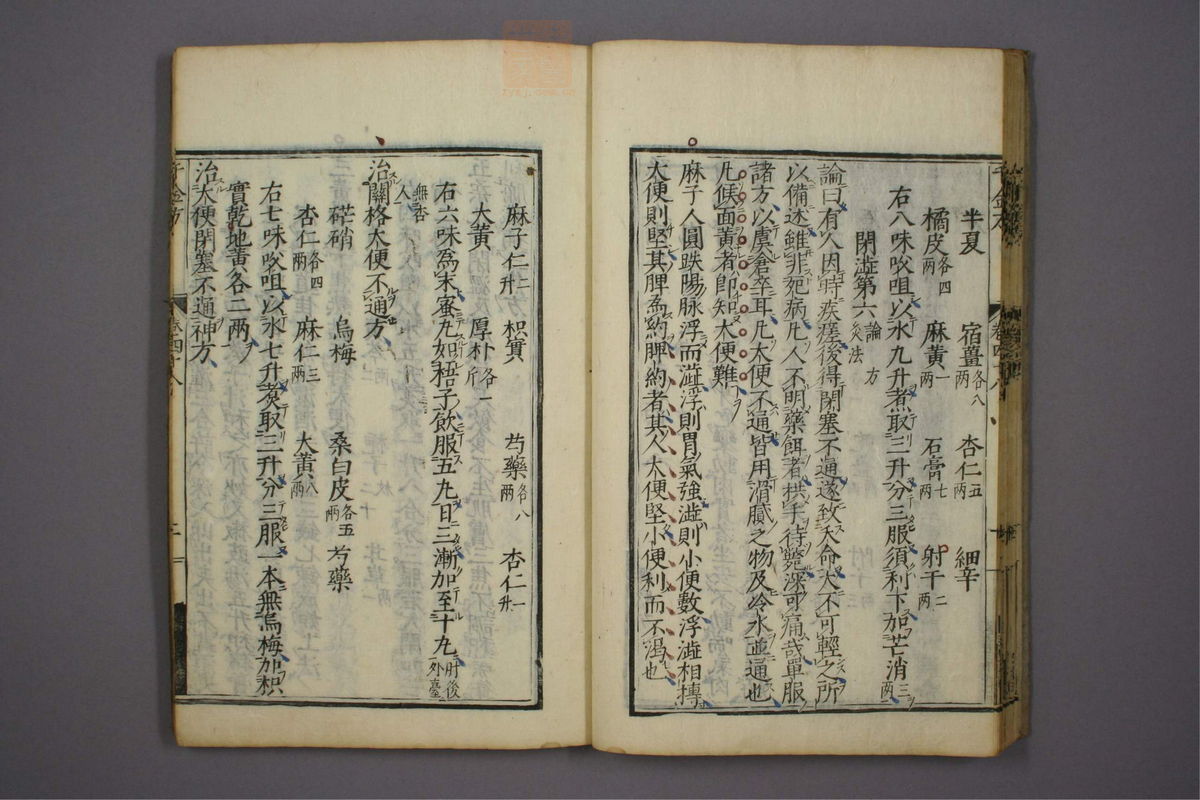 半夏 宿薑各八兩 杏仁五兩 細辛
橘皮各四兩 麻黃一兩 石膏七兩 射干二兩
右八味㕮咀以水九升煮取三升分三服須利下加芒消三兩
閉澁第六論 方 灸法
論曰有人因時疾瘥後得閉塞不通遂致夭命大不可輕之所
以備述雖非死病凡人不明藥餌者拱手待斃深可痛哉單服
諸方以虞倉卒耳凡大便不通皆用滑膩之物及冷水並通也
凡候面黃者即知大便難
麻子人圓趺陽脉浮而澁浮則胃氣強澁則小便數浮澁相摶
大便則堅其脾爲約脾約者其人大便堅小便利而不渴也
麻子仁二升 枳實 芍藥各八兩 杏仁一升
大黃 厚朴各一斤
右六味爲末蜜丸如梧子飲服五丸日三漸加至十丸肘後外臺
無杏人
治關格大便不通方
芒硝 烏梅 桑白皮各五兩 芍藥
杏仁各四兩 麻仁三兩 大黃八兩
右七味㕮咀以水七升煮取三升分三服一本無烏梅加枳
實乾地黃各二兩
治大便閉塞不通神方